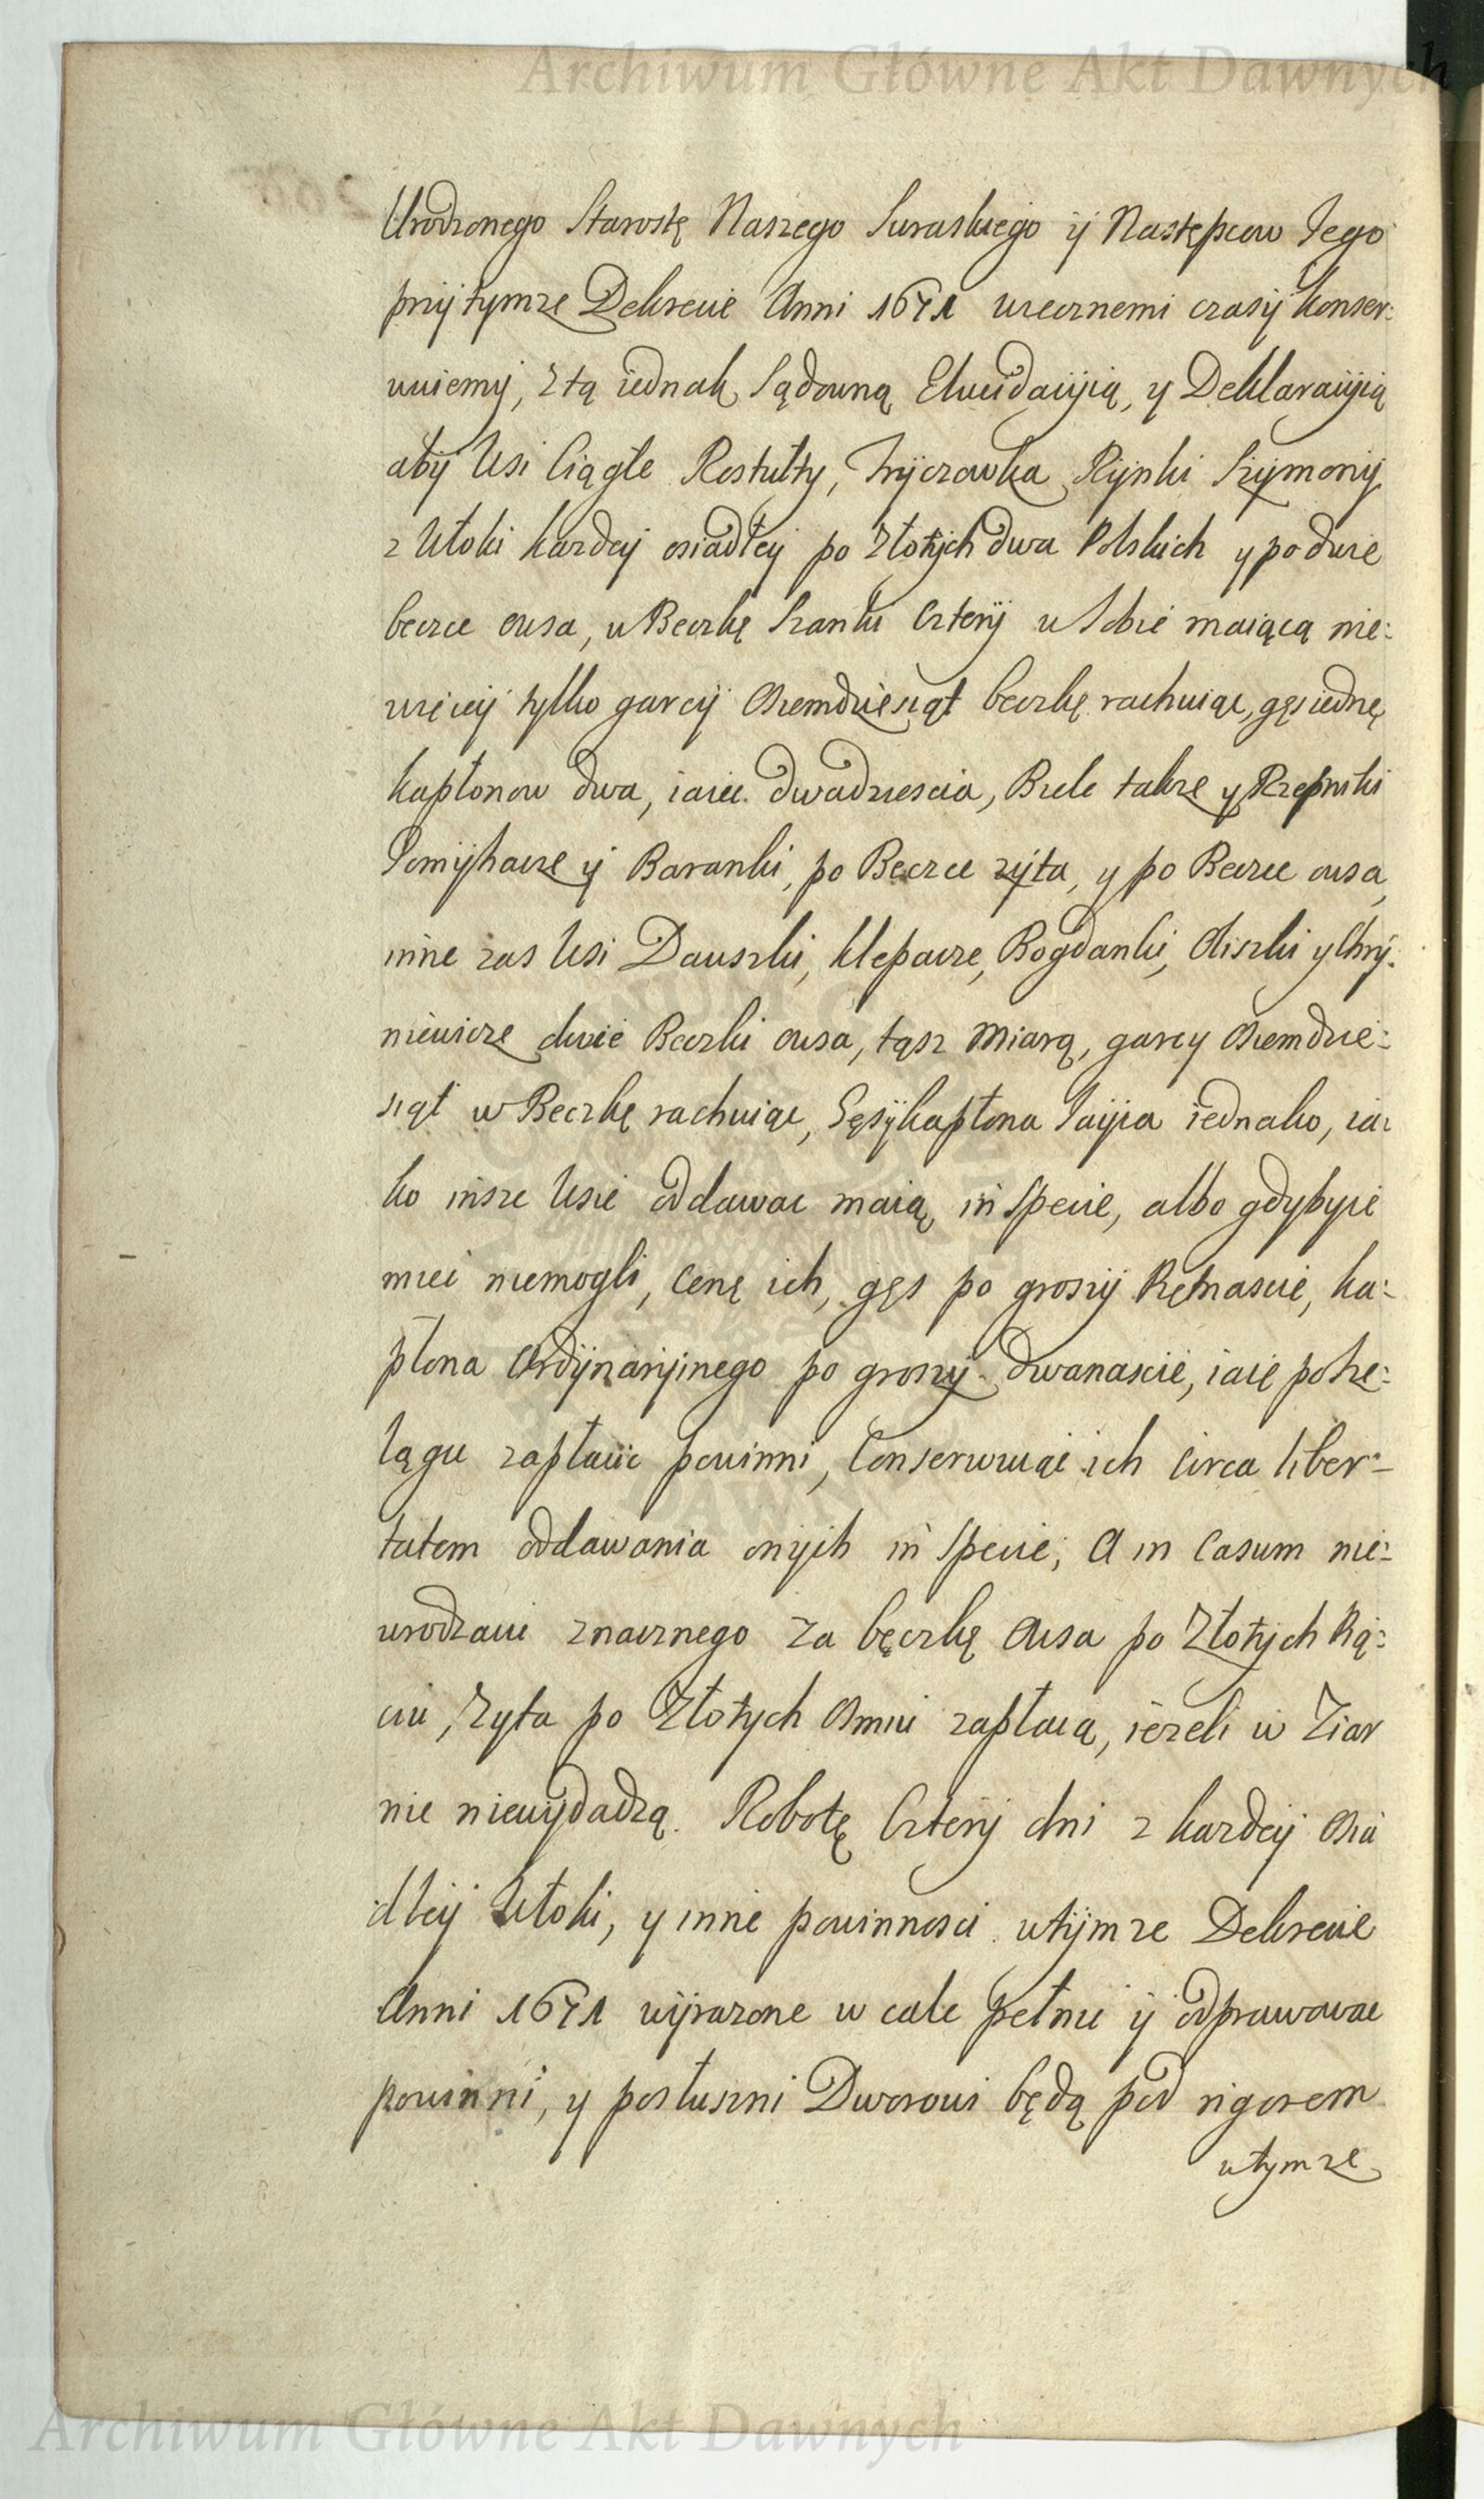 Archiwum Główne Akt Dawnych
Urodzonego Starostę Naszego Suraskiego ÿ Następcow Jego
przÿ tymże Dekrecie Anni 1671 wiecznemi czasÿ konser:
wuiemÿ, z tą iednak Sądowną Elucidacÿią, y Deklaracÿią
abÿ Wsi Ciągłe Rostułty, Trÿczowka Rÿnki Szÿmonÿ
z Włoki każdeÿ osiadłeÿ po Złotÿch dwa Polskich y po dwie
beczce owsa, w Beczkę Szanku Czterÿ w Sobie maiącą nie:
więceÿ tylko garcÿ Osiemdziesiąt beczkę rachuiąc, gęs iednę
kapłonow dwa, iaiec dwadziescia, Biele także y Rzepniki
Pomÿhacze ÿ Baranki, po Beczce żÿta, y po Beczce owsa,
inne zas Wsi Dauszki, Klepacze, Bogdanki, Oliszki y Chrÿ:
niewicze dwie Beczki owsa, tąsz Miarą, garcy Osiemdzie:
siąt w Beczkę rachuiąc, Gęsÿ kapłona Jaÿca iednako, ia:
ko insze Wsie oddawac maią in Specie, albo gdyby ie
miec niemogli, Cenę ich, gęs po groszÿ Piętnascie, ka:
płona Ordÿnarÿinego po groszÿ dwanascie, iaie po sze:
lągu zapłacic powinni, Conserwuiąc ich Circa liber:
tatem oddawania onÿch in Specie, A in Casum nie:
urodzaiu znacznego za bęczkę Owsa po Złotÿch Pią:
ciu, Zyta po Złotych Osmiu zapłacą, ieżeli w Ziar
nie niewÿdadzą. Robotę Czterÿ dni z każdeÿ Osia
dłeÿ Włoki, y inne powinnosci wtÿmże Dekrecie
Anni 1671 wÿrażone w cale pełnic ÿ odprawowac
powinni, y posłuszni Dworowi będą pod rigorem
wtymże
Archiwum Główne Akt Dawnych